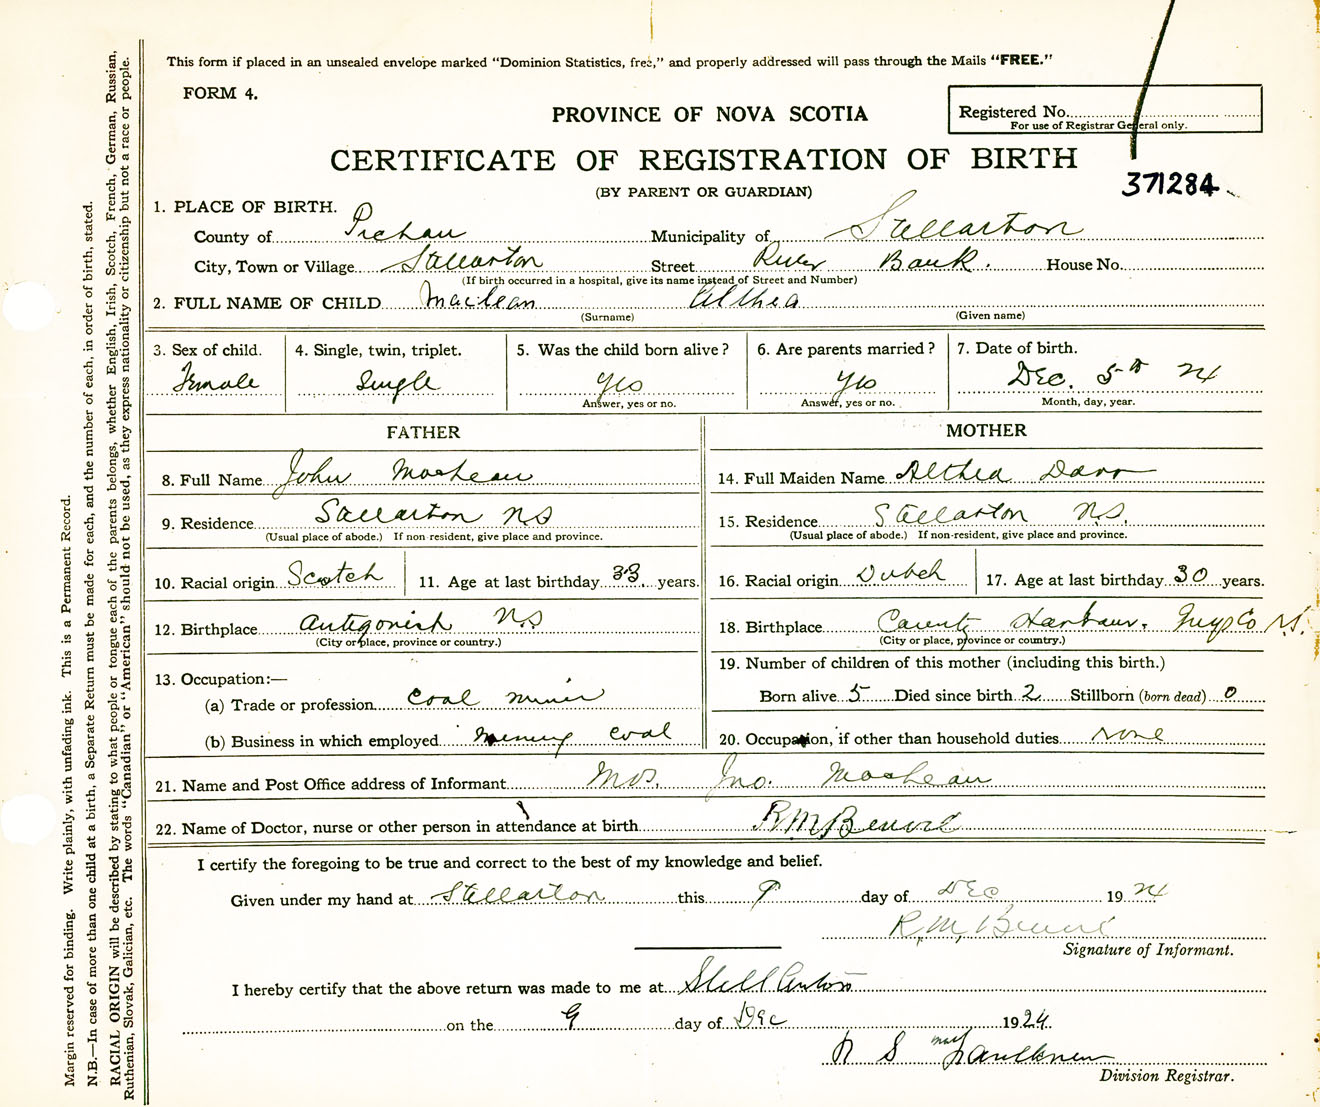 This form if placed in an unsealed envelope marked "Dominion Statistics, free," and properly addressed will pass through the Mails "FREE."
FORM 4.
PROVINCE OF NOVA SCOTIA
Registered No.
For use of Registrar General only.
CERTIFICATE OF REGISTRATION OF BIRTH
(BY PARENT OR GUARDIAN)
371284
1. PLACE OF BIRTH.
County of Pictou Municipality of Stellarton
City, Town or Village Stellarton Street River Bank. House No.
(If birth occurred in a hospital, give its name instead of Street and Number)
2. FULL NAME OF CHILD Maclean Althea
(Surname) (Given name)
3. Sex of child. 4. Single, twin, triplet. 5. Was the child born alive? 6. Are parents married? 7. Date of birth.
Female Single Yes Yes Dec. 5th 24
Answer, yes or no. Answer, yes or no. Month, day, year.
FATHER MOTHER
8. Full Name John MacLean 14. Full Maiden Name Althea
9. Residence Stellarton N S 15. Residence Stellarton N.S.
(Usual place of abode.) If non-resident, give place and province. (Usual place of abode.) If non-resident, give place and province.
10. Racial origin Scotch 11. Age at last birthday 33 years. 16. Racial origin Dutch 17. Age at last birthday 30 years.
12. Birthplace Antigonish N.S 18. Birthplace Harbour. Guys Co N.S.
(City or place, province or country.) (City or place, province or country.)
13. Occupation:— 19. Number of children of this mother (including this birth.)
(a) Trade or profession Coal miner Born alive 5 Died since birth 2 Stillborn (born dead) 0
(b) Business in which employed mining coal 20. Occupation, if other than household duties none
21. Name and Post Office address of Informant Mrs. Jno. MacLean
22. Name of Doctor, nurse or other person in attendance at birth R M
I certify the foregoing to be true and correct to the best of my knowledge and belief.
Given under my hand at Stellarton this 9 day of Dec 1924
R. M.
Signature of Informant.
I hereby certify that the above return was made to me at Stellarton
on the 9 day of Dec 1924.
S Mac Faulkner
Division Registrar.
Margin reserved for binding. Write plainly, with unfading ink. This is a Permanent Record.
N.B.—In case of more than one child at a birth, a Separate Return must be made for each, and the number of each, in order of birth, stated.
RACIAL ORIGIN will be described by stating to what people or tongue each of the parents belongs, whether English, Irish, Scotch, French, German, Russian,
Ruthenian, Slovak, Galician, etc. The words "Canadian" or "American" should not be used, as they express nationality or citizenship but not a race or people.